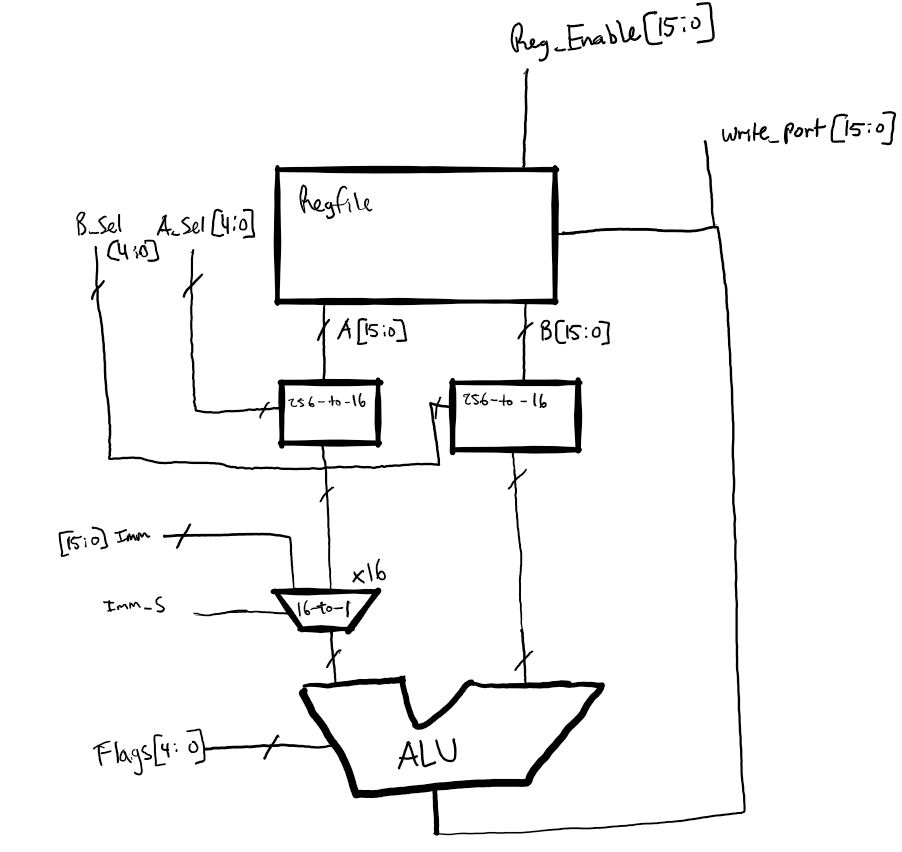 Reg_Enable[15:0]
write_port[15:0]
Regfile
B_Sel
[4:0]
A_Sel[4:0]
A[15:0]
B[15:0]
256-to-16
256-to-16
[15:0] Imm
x16
Imm_S
16-to-1
Flags[4:0]
ALU